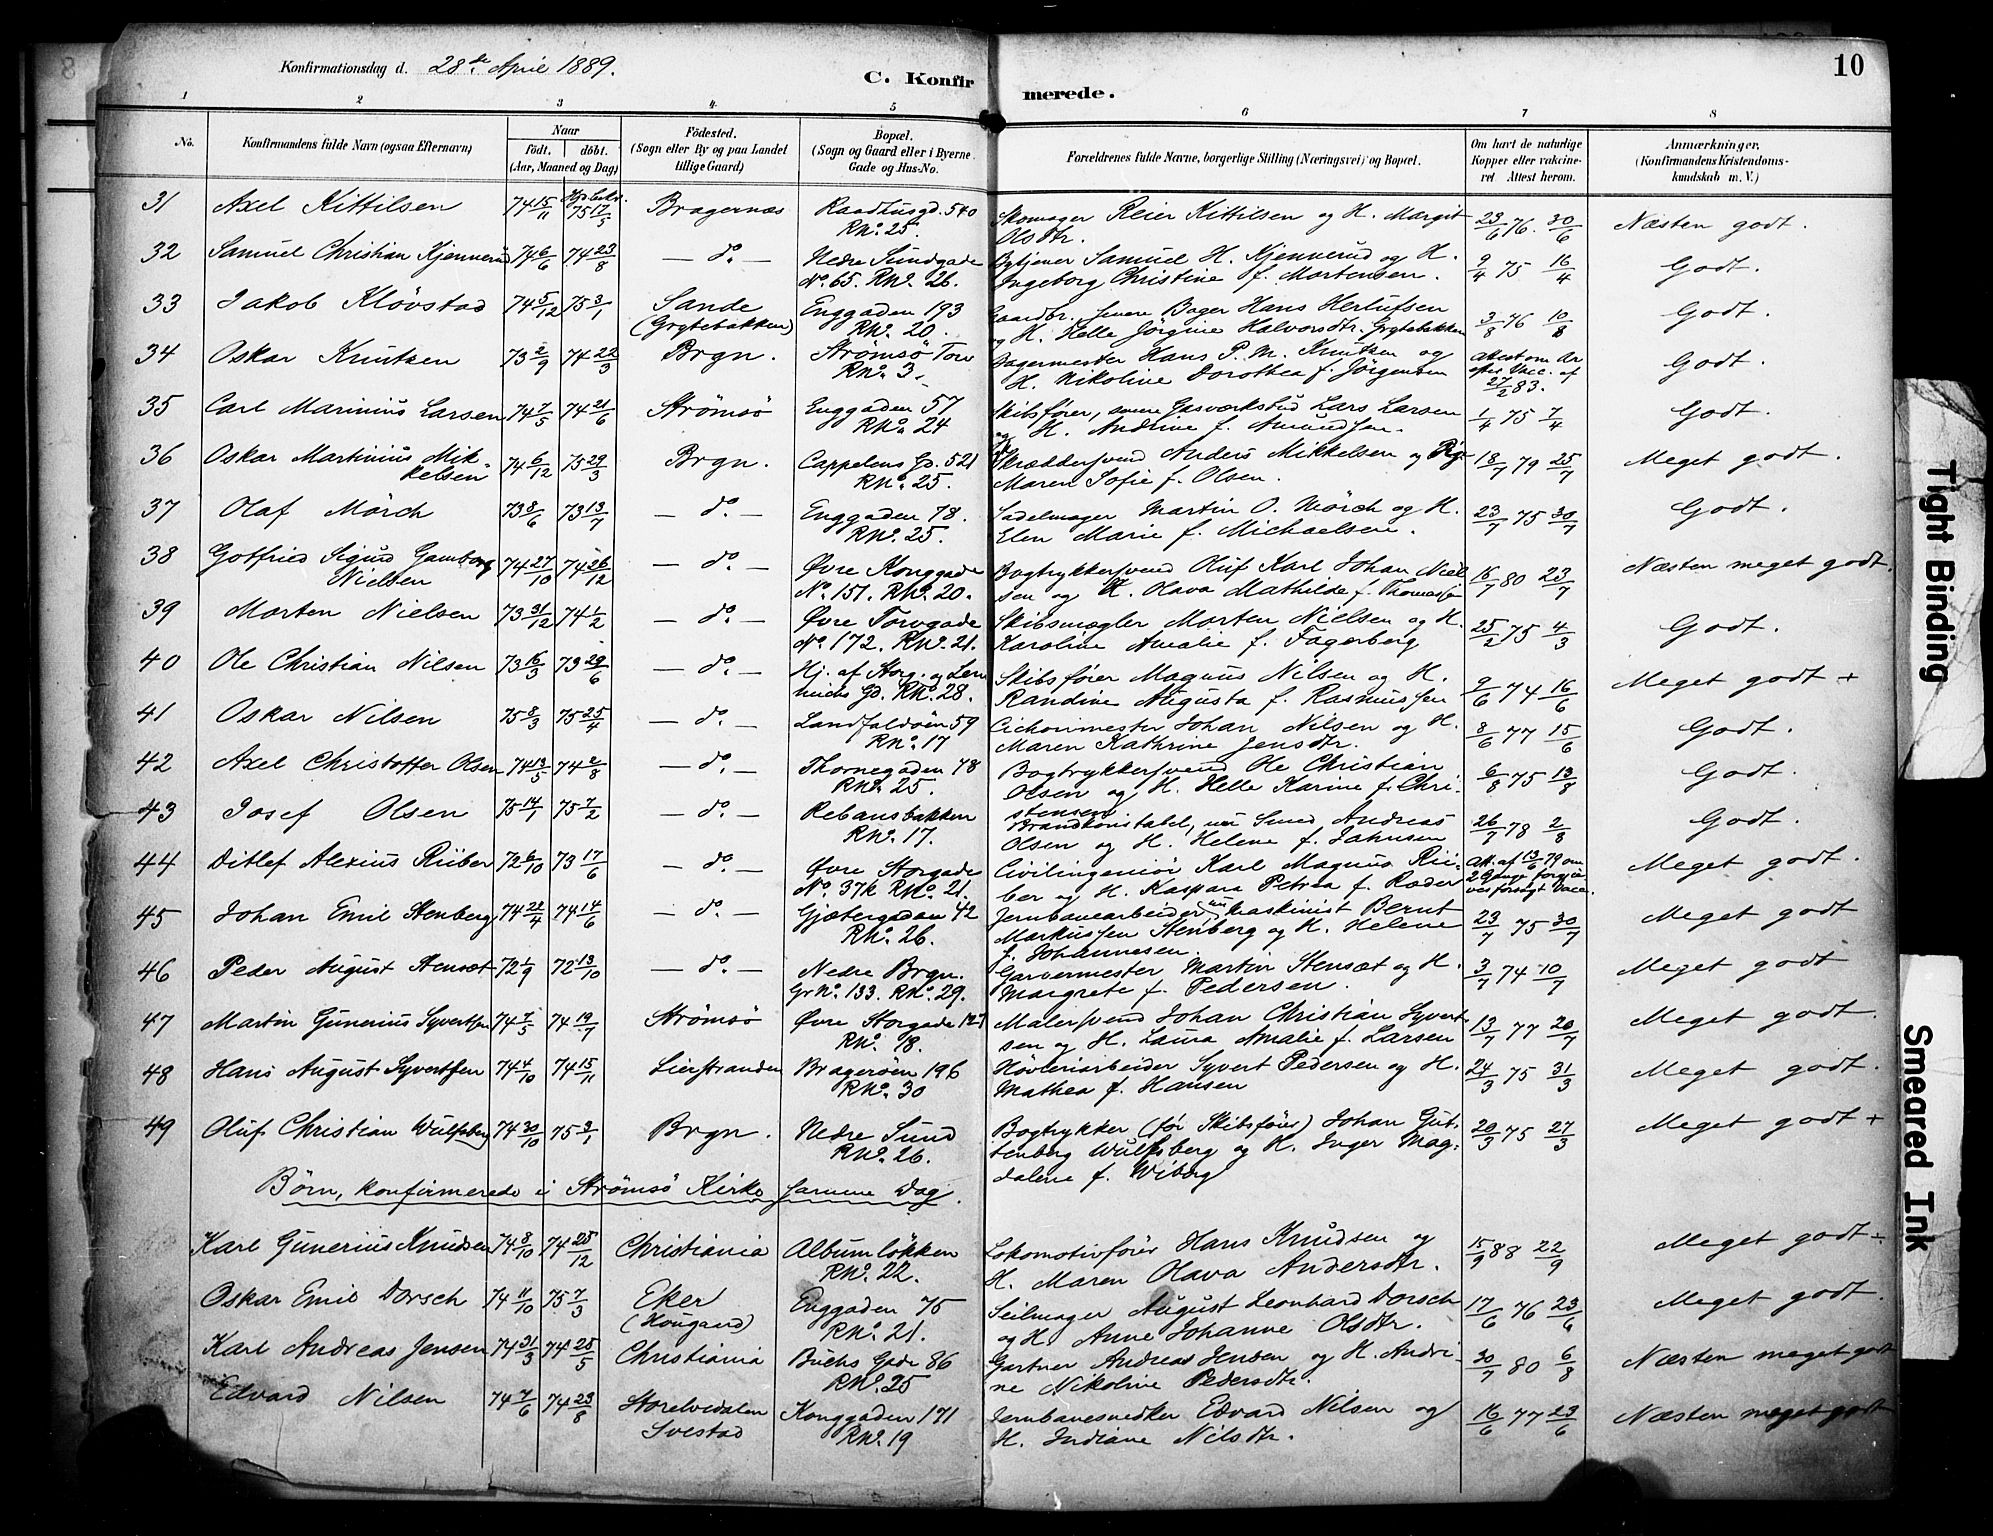 Konfirmationsdag d. 28de April 1889.
C. Konfirmerede.
10
1 2 3 4 5 6 7 8
No. Konfirmandens fulde Navn (ogsaa Efternavn) Naar født. døbt. (Aar, Maaned og Dag) Födested. (Sogn eller By og paa Landet tillige Gaard) Bopæl. (Sogn og Gaard eller i Byerne Gade og Hus-No. Forældrenes fulde Navne, borgerlige Stilling (Næringsvei) og Bopæl. Om havt de naturlige Kopper eller vaccineret. Attest herom. Anmærkninger. (Konfirmandens Kristendomskundskab m. V.)
31 Axel Kittilsen 74 15/11 75 17/5 Bragernæs Raadhusgd. 540 RNo. 25. Skomager Reier Kittilsen og H. Margit Olsdtr. 23/6 76. 30/6 Næsten godt.
32 Samuel Christian Kjennerud 74 6/6 74 23/8 — do. — Nedre Sundgade No. 65. RNo. 26. Bytjener Samuel H. Kjennerud og H. Ingeborg Christine f. Mortensen. 9/4 75 16/4 Godt.
33 Jakob Klövstad 74 5/12 75 3/1 Sande (Grytebakken) Enggaden 193 RNo. 20. Gaardbr. senere Bager Hans Herlufsen og H. Helle Jörgine Halvorsdtr. Grytebakken 3/8 76 10/8 Godt.
34 Oskar Knutzen 73 2/9 74 22/3 Brgn. Strömsö Torv RNo. 3. Bagermester Hans P. M. Knutzen og H. Nikoline Dorothea f. Jörgensen 27/2 83. Godt.
35 Carl Marinius Larsen 74 7/5 74 21/6 Strömsö Enggaden 57 RNo. 24 Skibsfører, senere Gasværksbud Lars Larsen og H. Andrine f. Amundsen. 1/4 75 7/4 Godt.
36 Oskar Martinius Mikkelsen 74 6/12 75 29/3 Brgn. Cappelens Gd. 521 RNo. 25. Skræddersvend Anders Mikkelsen og Pige Maren Sofie f. Olsen. 18/7 79 25/7 Meget godt.
37 Olaf Mörch 73 8/6 73 13/7 — do. — Enggaden 78. RNo. 25. Sadelmager Martin O. Mörch og H. Elen Marie f. Michaelsen. 23/7 75 30/7 Godt.
38 Gotfried Sigurd Gamborg Nielsen 74 27/10 74 26/12 — do. — Øvre Konggade No. 151. RNo. 20. Bogtrykkersvend Oluf Karl Johan Nielsen og H. Olava Mathilde f. Thomessen 16/7 80 23/7 Næsten meget godt.
39 Morten Nielsen 73 31/12 74 1/2 — do. — Øvre Torvgade No. 172. RNo. 21. Skibsmægler Morten Nielsen og H. Karoline Amalie f. Fagerberg 25/2 75 4/3 Godt.
40 Ole Christian Nilsen 73 16/3 73 29/6 — do. — Hj. af Storg. og RNo. 28. Skibsfører Magnus Nilsen og H. Randine Augusta f. Rasmussen 9/6 74 16/6 Meget godt +
41 Oskar Nilsen 75 8/3 75 25/4 — do. — Landfaldöen 59 RNo. 17 Cichorimester Johan Nilsen og H. Maren Kathrine Jensdtr. 8/6 77 15/6 Godt.
42 Axel Christoffer Olsen 74 13/5 74 2/8 — do. — Thornegaden 78 RNo. 25. Bogtrykkersvend Ole Christian Olsen og H. Helle Karine f. Christensen 6/8 75 13/8 Godt.
43 Josef Olsen 75 14/1 75 7/2 — do. — Rebansbakken RNo. 17. Brandkonstabel, nu Smed Andreas Olsen og H. Helene f. Jahnsen 26/7 78 2/8 Godt.
44 Ditlef Alexius Riiber 72 6/10 73 17/6 — do. — Øvre Storgade No. 37k RNo. 21. Civilingeniör Karl Magnus Riiber og H. Kaspara Petrea f. Ræder Att. af 13/6 79 om 2 Gange forgjæves forsøgt Vacc. Meget godt.
45 Johan Emil Stenberg 74 22/4 74 14/6 — do. — Gjætergaden 42 RNo. 26. Jernbanearbeider nu Maskinist Bernt Markussen Stenberg og H. Helene f. Johannesen. 23/7 75 30/7 Meget godt
46 Peder August Stensæt 72 1/9 72 13/10 — do. — Nedre Brgn. Gr No. 133. RNo. 29. Garvermester Martin Stensæt og H. Margrete f. Pedersen. 3/7 74 10/7 Meget godt
47 Martin Gunerius Syvertsen 74 7/5 74 19/7 Strömsö Øvre Storgade 127 RNo. 18. Malersvend Johan Christian Syvertsen og H. Laura Amalie f. Larsen 13/7 77 20/7 Meget godt.
48 Hans August Syvertsen 74 4/10 74 15/11 Lierstranden Bragerøen 196 RNo. 30 Hövleriarbeider Syvert Pedersen og H. Mathea f. Hansen 24/3 75 31/3 Meget godt.
49 Oluf Christian Wulfsberg 74 30/10 75 3/1 Brgn. Nedre Sund RNo. 26. Bogtrykker (før Skibsfører) Johan Guttenberg Wulfsberg og H. Inger Magdalene f. Wiborg 20/3 75 27/3 Meget godt +
Børn, konfirmerede i Strömsö Kirke samme Dag.
Karl Gunerius Knudsen 74 8/10 74 25/12 Christiania Albumløkken RNo. 22. Lokomotivfører Hans Knudsen og H. Maren Olava Andersdtr. 15/9 88 22/9 Meget godt ÷
Oskar Emil Dorsch 74 11/10 75 7/3 Eker (Hougaard) Enggaden 75 RNo. 21. Seilmager August Leonhard Dorsch og H. Anne Johanne Olsdtr. 17/6 76 23/6 Meget godt.
Karl Andreas Jensen 74 31/3 74 25/5 Christiania Buchs Gade 86 RNo. 25 Gartner Andreas Jensen og H. Andrine Nikoline Pedersdtr. 30/7 80 6/8 Næsten meget godt
Edvard Nilsen 74 7/6 74 23/8 Storelvedalen Svestad Konggaden 171 RNo. 19 Jernbanesnedker Edvard Nilsen og H. Indiane Nilsdtr. 16/6 77 23/6 Næsten meget godt
Tight Binding
Smeared Ink